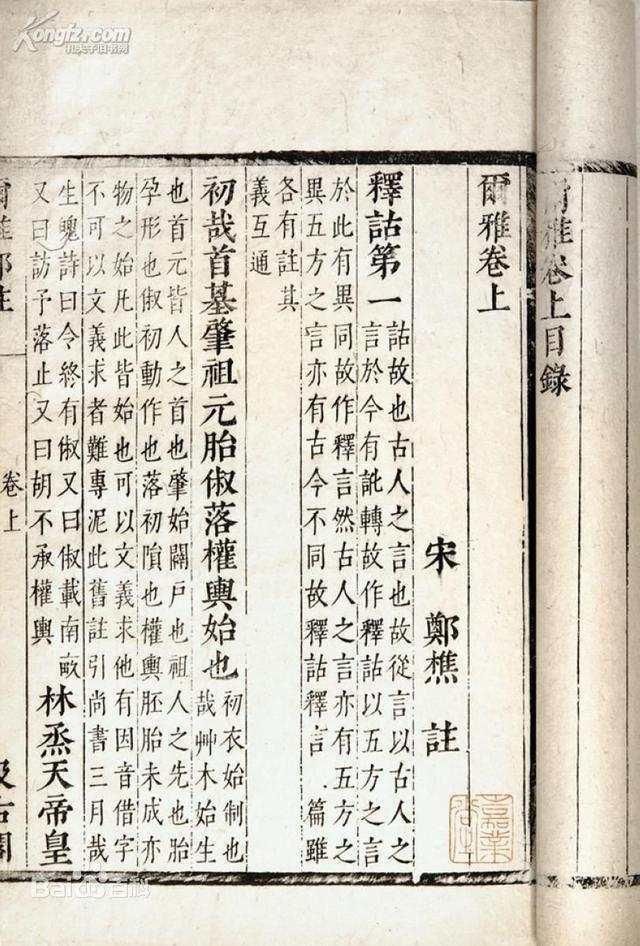 爾雅卷上目錄
爾雅卷上
宋 鄭樵 註
釋詁第一
詁故也古人之言也故從言以古人之
言於今有訛轉故作釋詁以五方之言
於此有異同故作釋言然古人之言亦有五方之
異五方之言亦有古今不同故釋詁釋言 篇雖
各有註其
義互通
初哉首基肇祖元胎俶落權輿始也
初衣始制也
哉艸木始生
也首元皆人之首也肇始闢戶也祖人之先也胎
孕形也俶初動作也落初隕也權輿胚胎未成亦
物之始凡此皆始也可以文義求他有因音借字
不可以文義求者難專泥此舊註引尚書三月哉
生魄詩曰令終有俶又曰俶載南畝
又曰訪予落止又曰胡不承權輿
林烝天帝皇
爾雅鄭註
卷上
汲古閣
Kongfz.com
孔夫子旧书网
Baidu百科